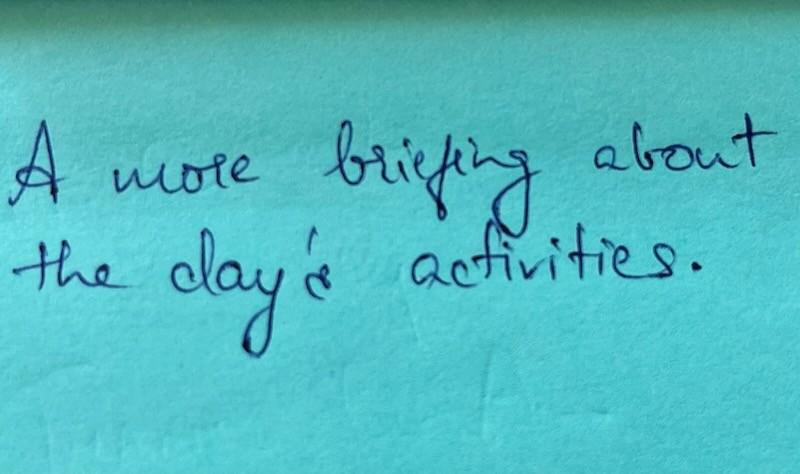 A more briefing about
the day's activities.